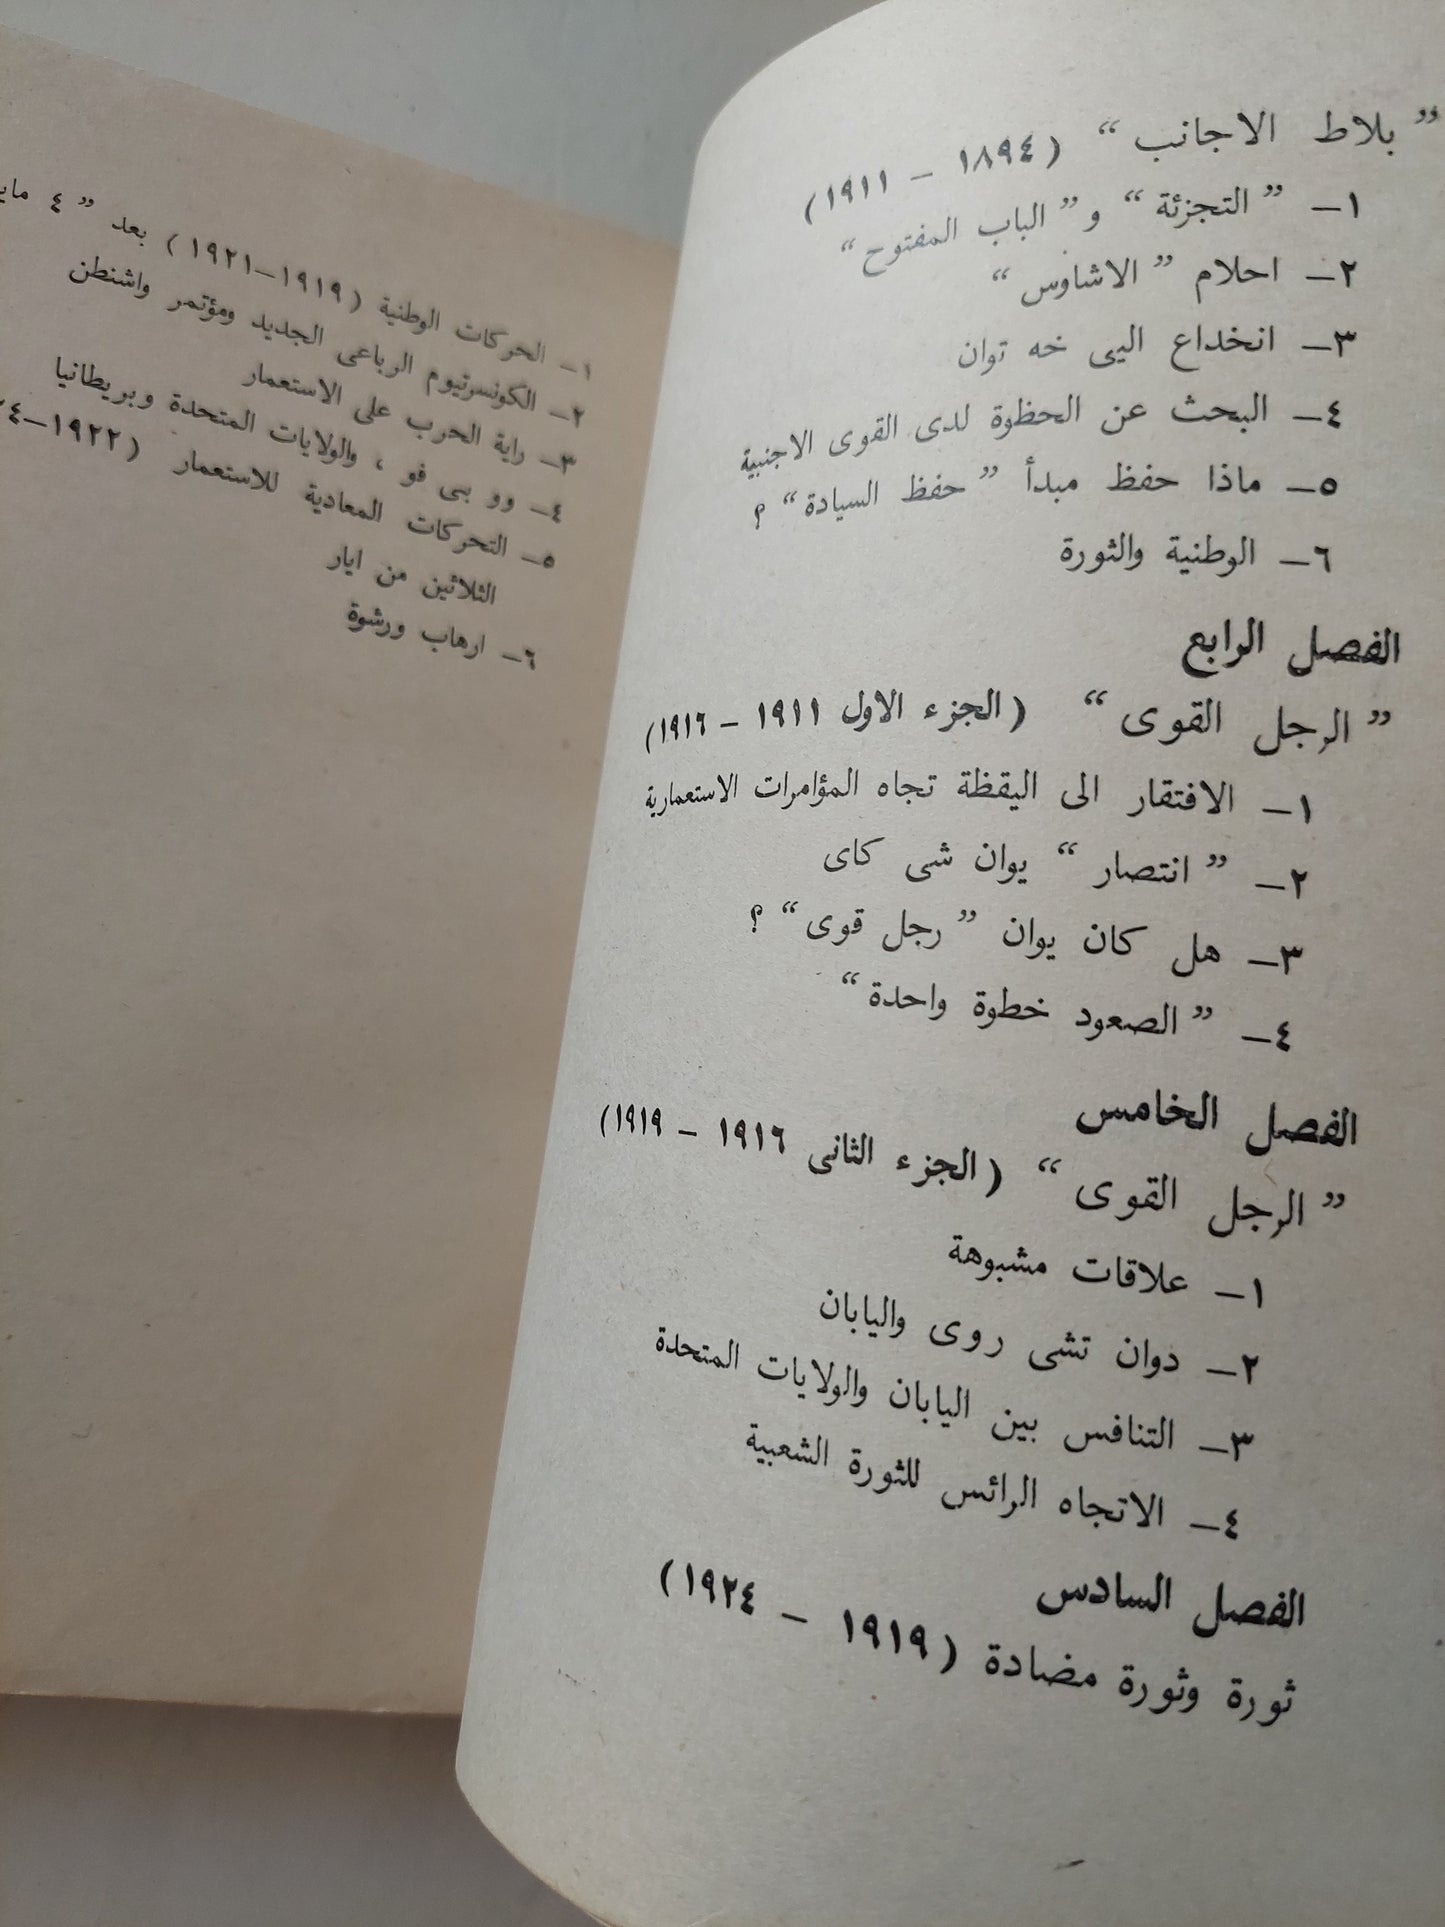 ” بلاط الاجانب “ (١٨٩٤ – ١٩١١)
١– ” التجزئة “ و ” الباب المفتوح “
٢– احلام ” الاشاوس “
٣– انخداع اليى خه توان
٤– البحث عن الحظوة لدى القوى الاجنبية
٥– ماذا حفظ مبدأ ” حفظ السيادة “ ؟
٦– الوطنية والثورة
الفصل الرابع
” الرجل القوى “ (الجزء الاول ١٩١١ – ١٩١٦)
١– الافتقار الى اليقظة تجاه المؤامرات الاستعمارية
٢– ” انتصار “ يوان شى كاى
٣– هل كان يوان ” رجل قوى “ ؟
٤– ” الصعود خطوة واحدة “
الفصل الخامس
” الرجل القوى “ (الجزء الثانى ١٩١٦ – ١٩١٩)
١– علاقات مشبوهة
٢– دوان تشى روى واليابان
٣– التنافس بين اليابان والولايات المتحدة
٤– الاتجاه الرائس للثورة الشعبية
الفصل السادس
ثورة وثورة مضادة (١٩١٩ – ١٩٢٤)
١– الحركات الوطنية (١٩١٩–١٩٢١) بعد ” ٤
٢– الكونسرتيوم الرباعى الجديد ومؤتمر واشنطن
٣– راية الحرب على الاستعمار
٤– وو بى فو ، والولايات المتحدة وبريطانيا
٥– التحركات المعادية للاستعمار (١٩٢٢–
الثلاثين من ايار
٦– ارهاب ورشوة